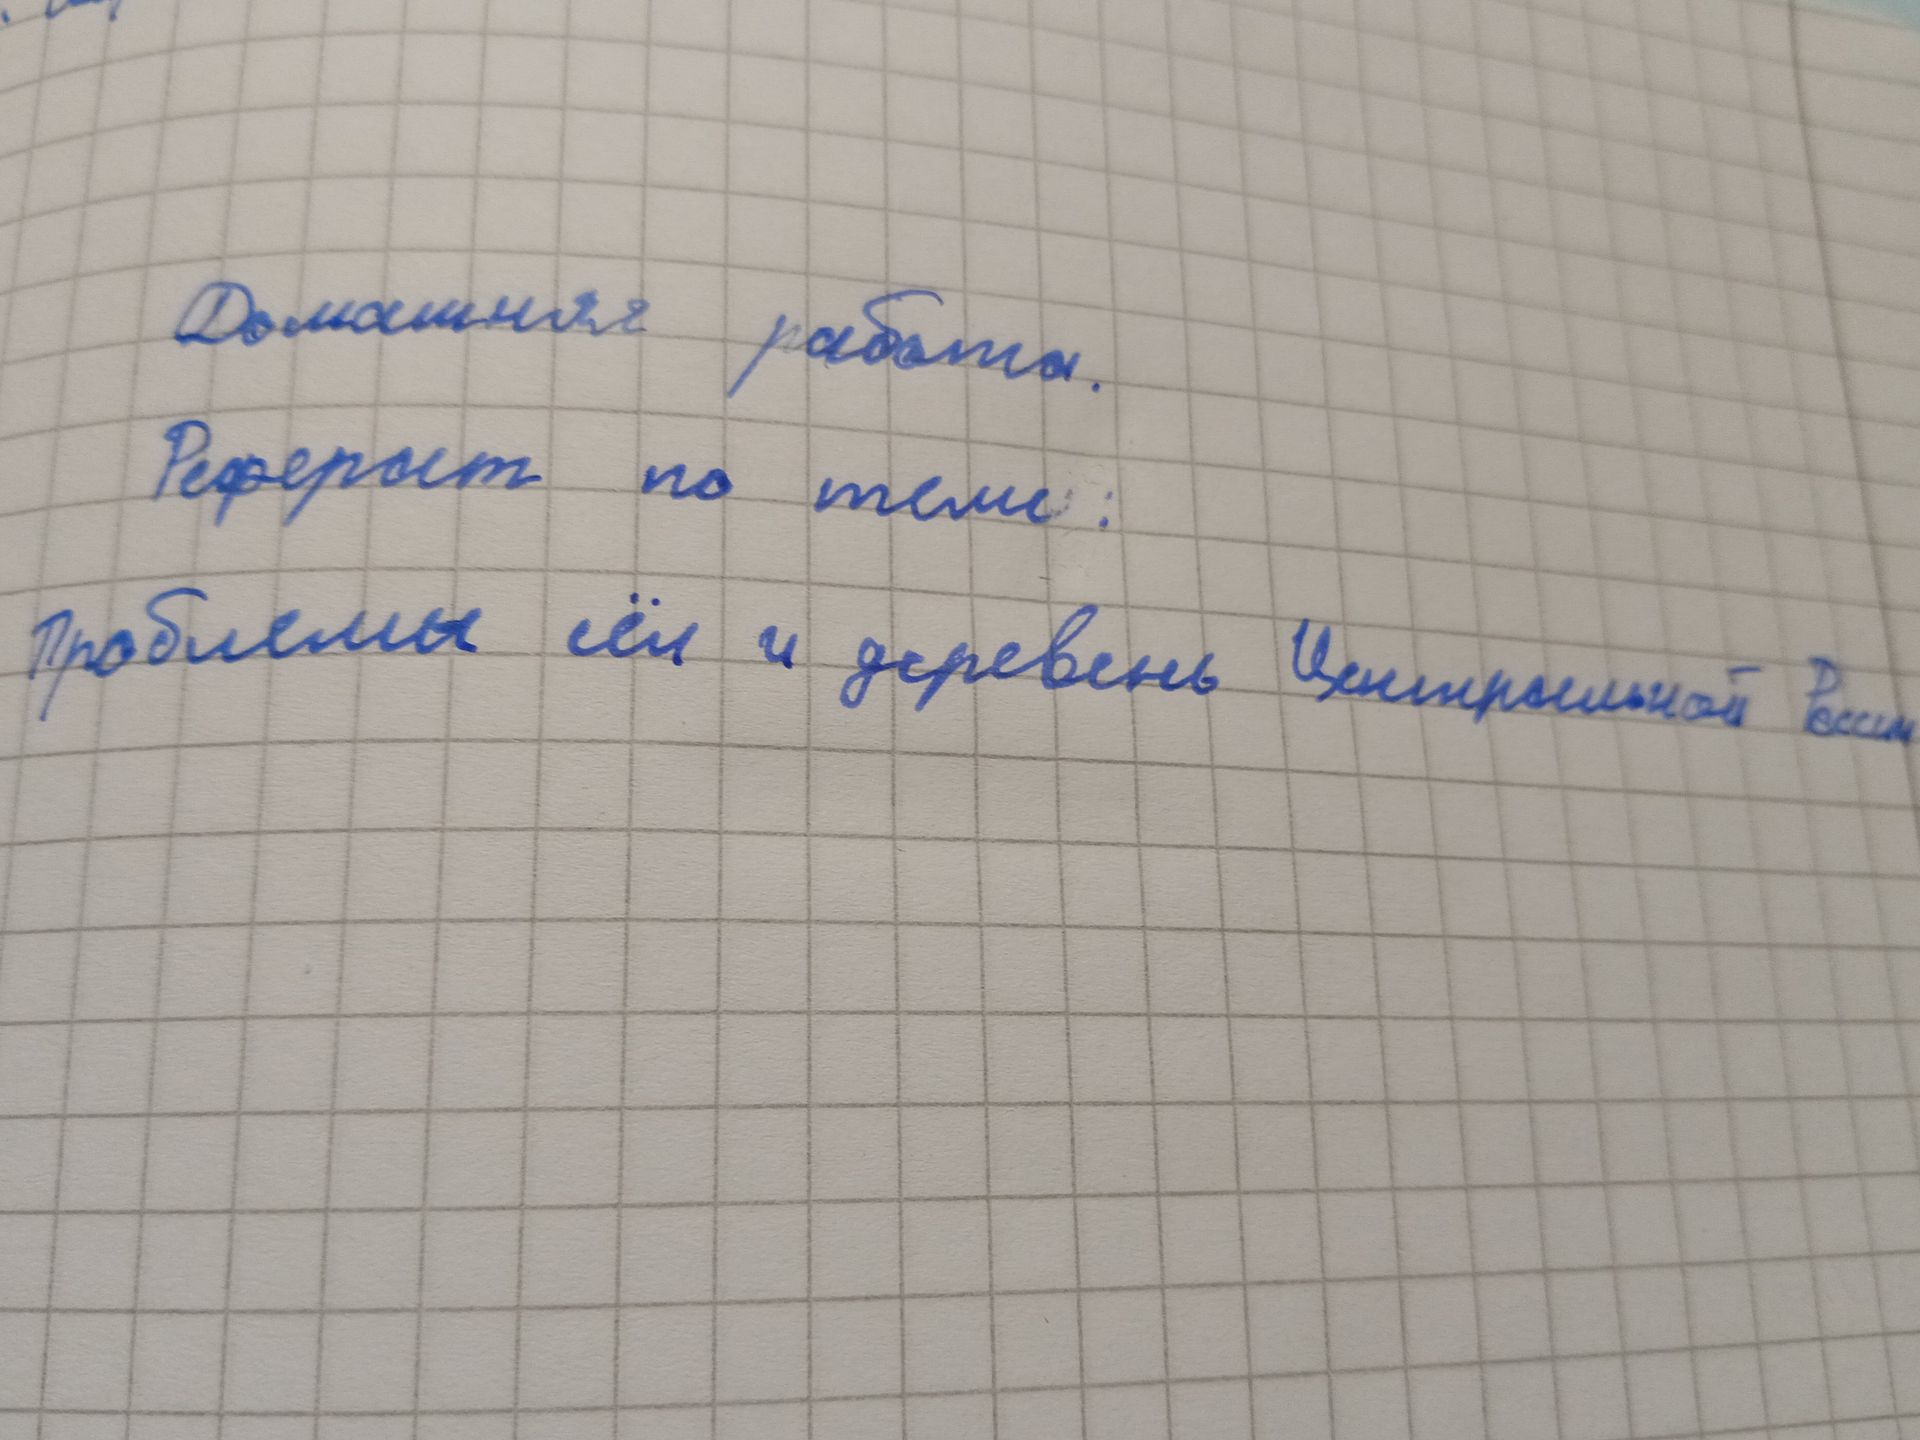 Домашняя работа.
Реферат по теме:
Проблемы сёл и деревень Центральной России